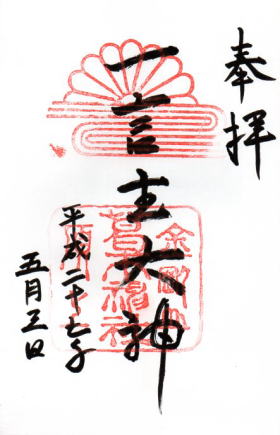 奉拝
一言主大神
平成二十七年
五月三日
金剛山
葛木神社